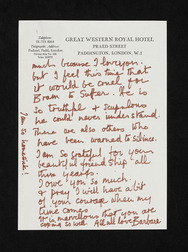 Telephone
01-723 8064
Telegraphic Address
GREAT WESTERN ROYAL HOTEL
PRAED STREET
PADDINGTON, LONDON, W.2
much because I love you.
but I feel this time that
it would be cruel for
Bram to suffer. He is
so truthful & scrupulous
he could never understand.
There are also others who
have been warned to silence
I am so grateful for your
beautiful friendship all
these years.
I owe you so much.
& pray I will have a bit
of your courage when my
time comes
It is marvellous that you are
coping so well. All all love Barbara
I am so homesick!